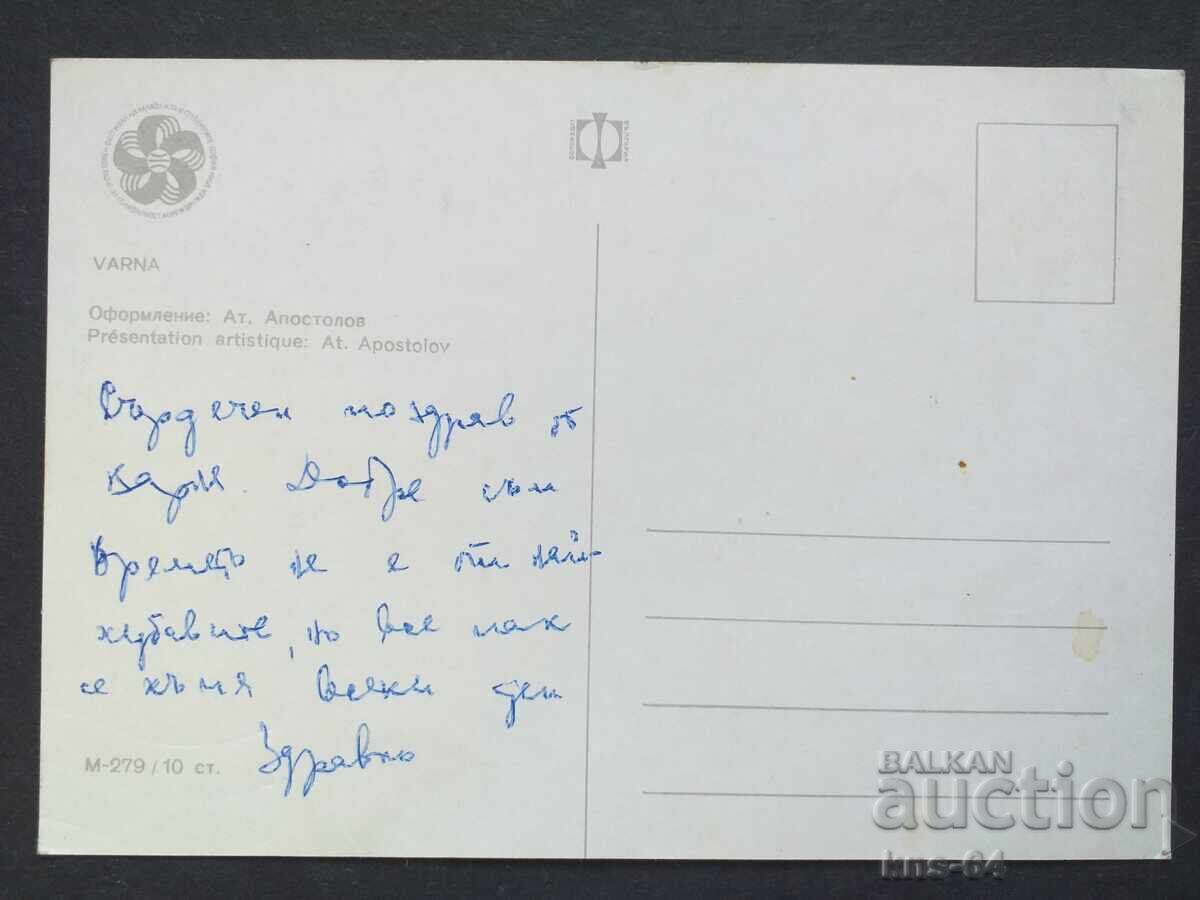 VARNA
Оформление: Ат. Апостолов
Présentation artistique: At. Apostolov
Сърдечен поздрав от
Варна. Добре съм
времето не е от най-
хубавите, но все пак
се къпя всеки ден
Здравко
М-279/10 ст.
BALKAN
auction
kns-64